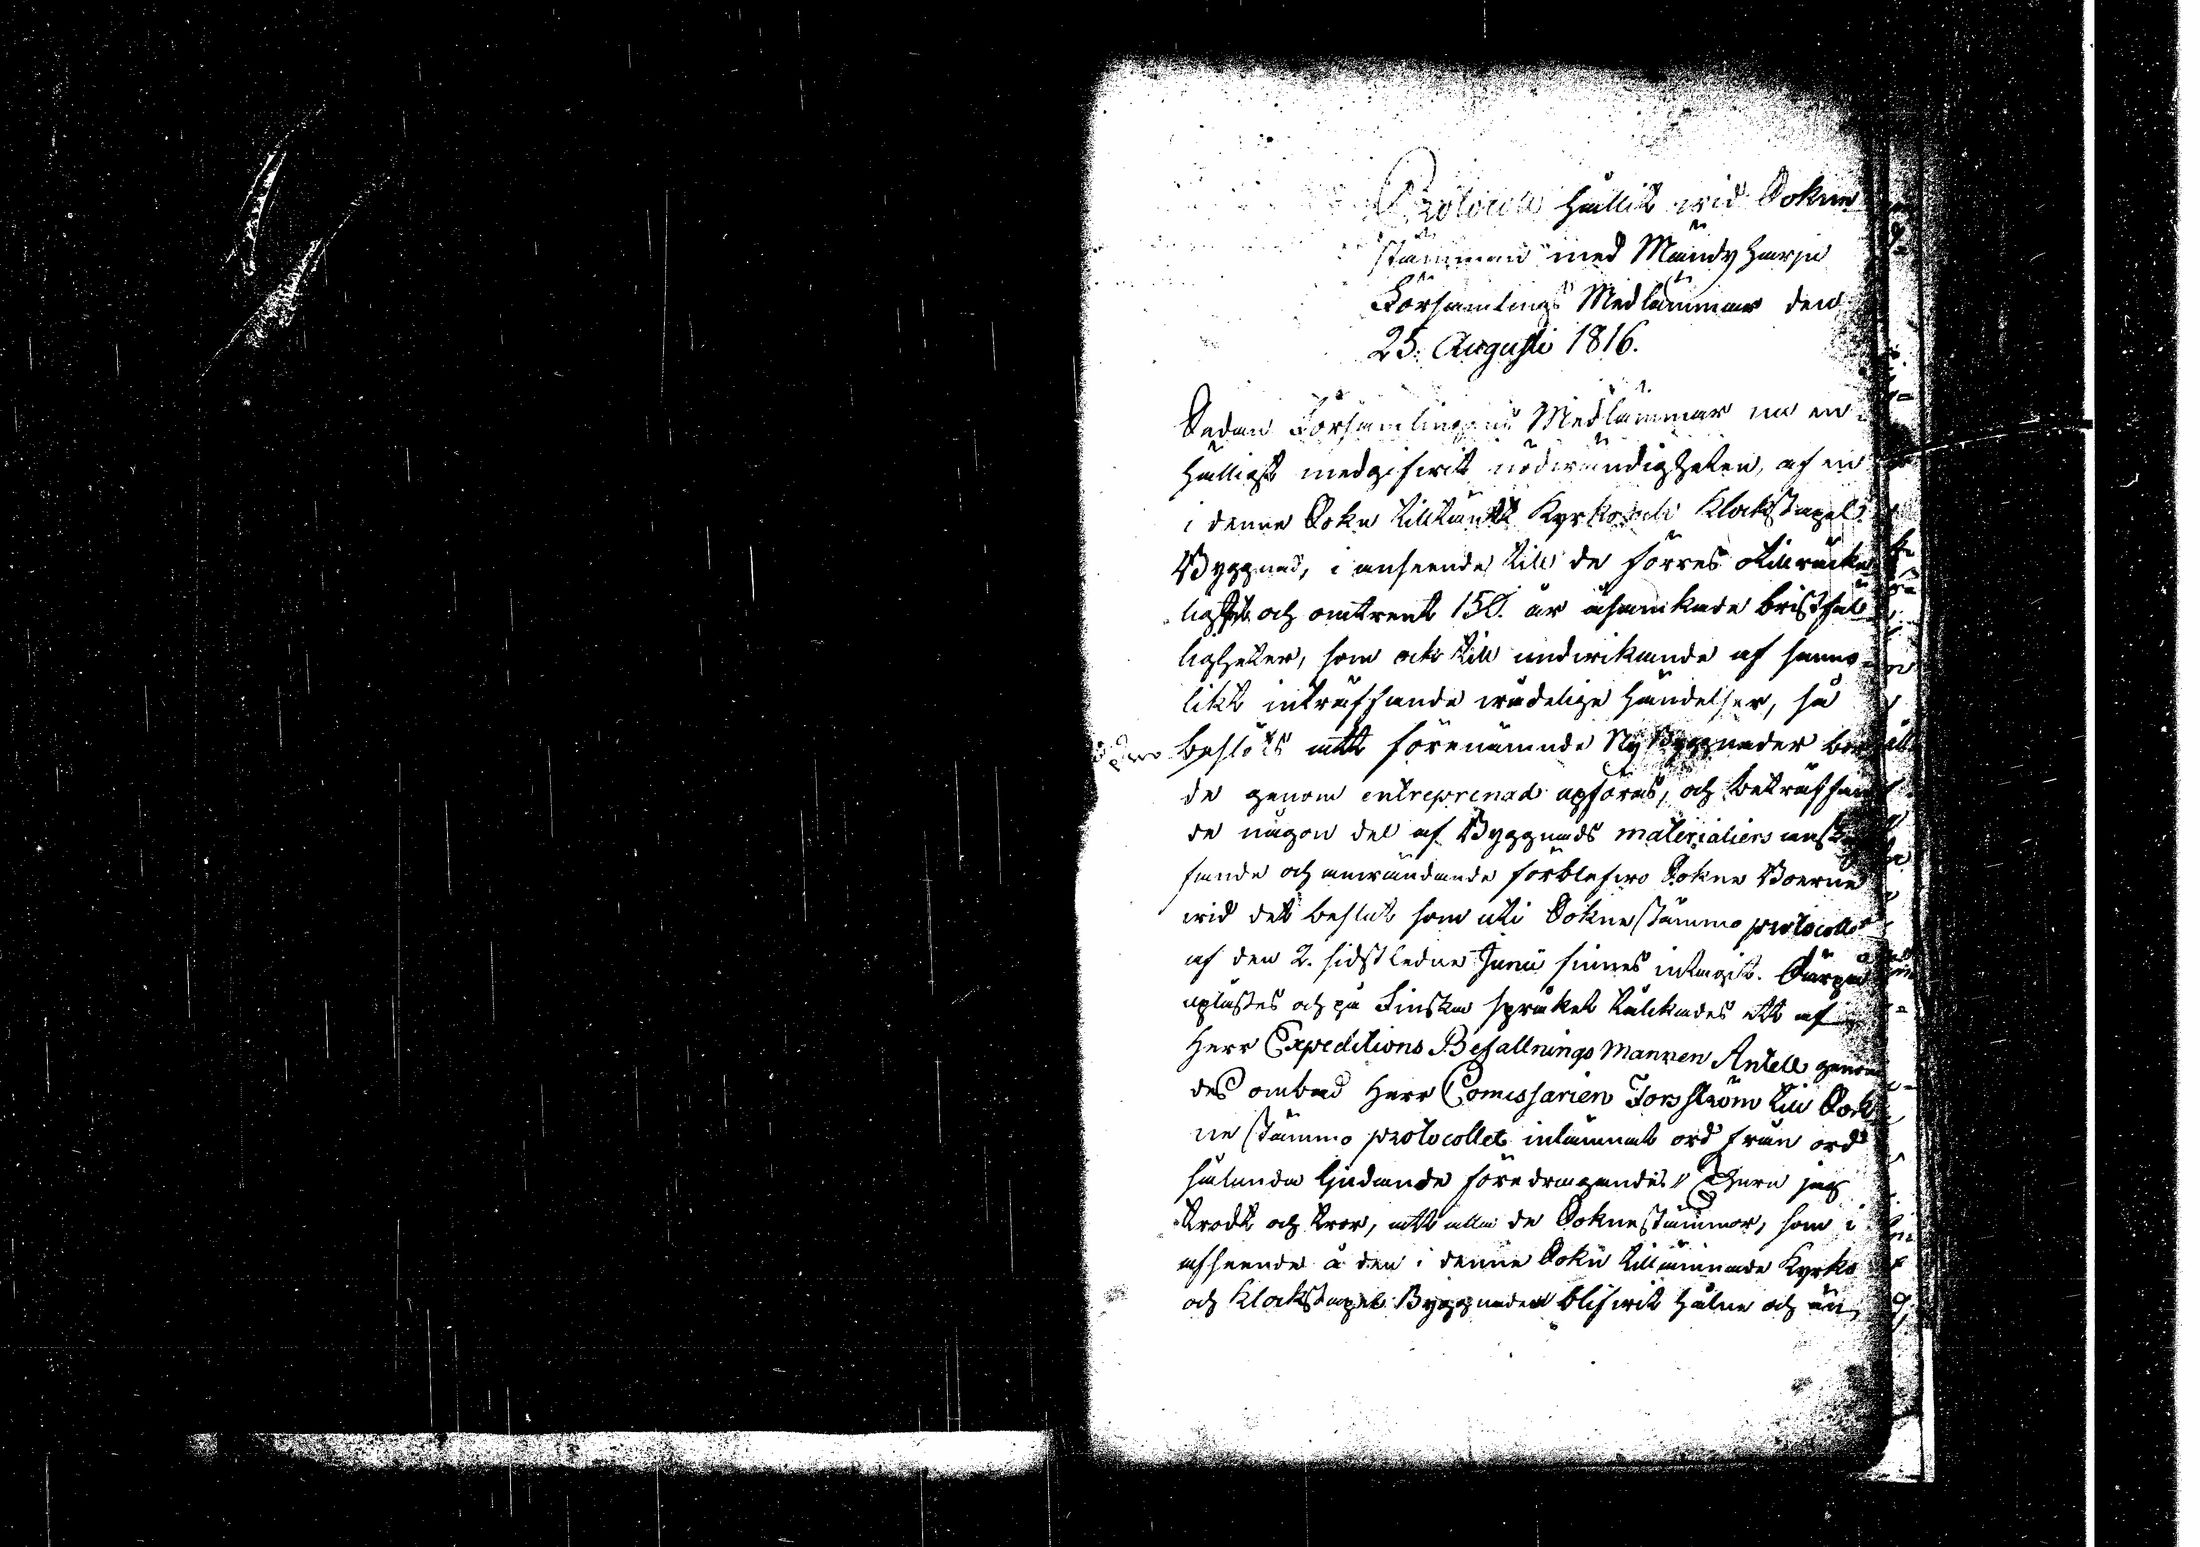 Protocoll hållit wid Sokne
stämman med Mändyharju
Församlings Medlämmar den
25. Augusti 1816.
Sedan Församlingens Medlämmar nu en
hälligt medgifwit nödwändigheten, af en
i denne Sokn tilltänkt Kyrko och Klockstapel
Byggnad, i anseende till de förres otillräcke
lighet och omtrent 150. år åsamkade bristfäl
ligheter, som ock till undwikande af sanno-
likt inträffande wådelige händelser, så
beslöts att förenämnde Ny Byggnader bor
de genom entreprenad upföras, och beträffan
de någon del af Byggnads materialiers anskaf
fande och anwändande förblefwo Sokne Boerne
wid det beslut som uti Soknestämmo protocollet
af den 2. sidstledne Junii finnes intagit. Därpå
uplästes och på Finska språket tålckades ett af
Herr Expeditions Befallnings Mannen Antell genom
des ombud Herr Comissarien Forsström till Sok
ne stämmo protocollet inlämnat ord från ord
sålunda ljudande föredragande: jag
trodt och tror, att alla de Soknestämmor, som i
afseende å den i denne Sokn tillämnade Kyrko
och Klockstapel Byggnaden blifwit hålne och än